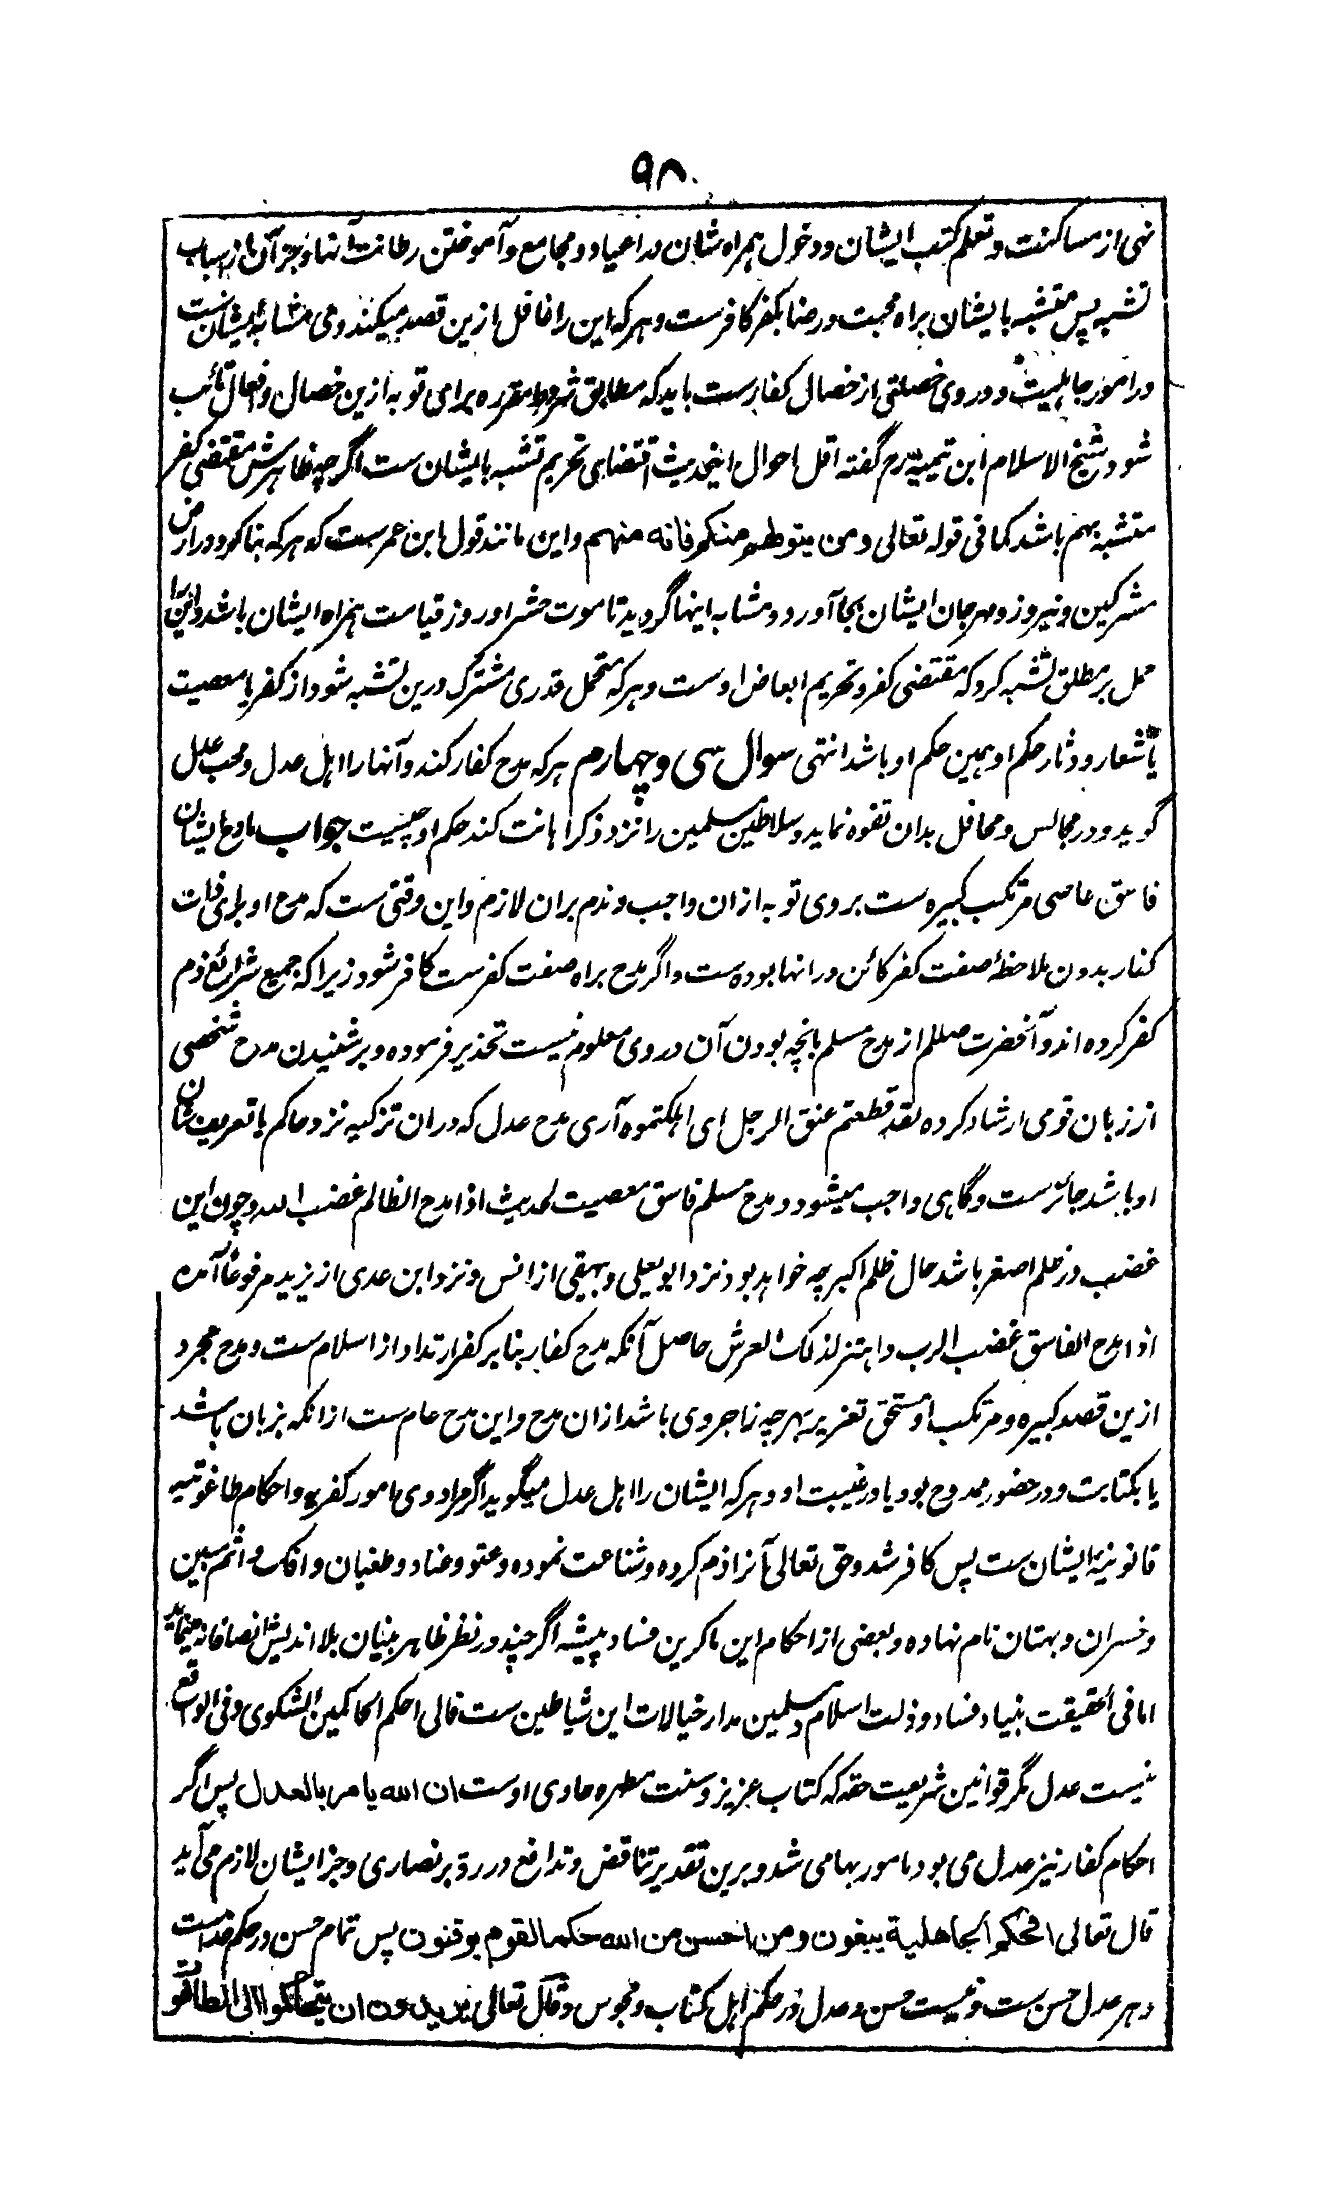 ٩٨
نهی از مساکنت و تعلم کتب ایشان و دخول همراه شان در اعیاد و مجامع و آموختن رطانت آنها و جز آن از اسباب
تشبه پس متشبه بایشان براه محبت و رضا بکفر کافرست و هر که این را غافل ازین قصد میکند و می مشابه ایشان ست
در امور جاهلیت و در وی خصلتی از خصال کفارست باید که مطابق شروط مقرره برای توبه ازین خصال و افعال تائب
شود شیخ الاسلام ابن تیمیه رح گفته اقل احوال اینحدیث اقتضای تحریم تشبه بایشان ست اگرچه ظاهرش مقتضی کفر
متشبه بهم باشد کما فی قوله تعالی ومن یتولهم منکم فانه منهم و این مانند قول ابن عمرست که هر که بنا کرد در ارض
مشرکین و نیروز و مهرجان ایشان بجا آورد و مشابه اینها گردید تا موت حشر او روز قیامت همراه ایشان باشد و این را
حمل بر مطلق تشبه کرد که مقتضی کفر و تحریم ابعاض اوست و هر که متحمل قدری مشترک درین تشبه شود از کفر یا معصیت
یا شعار و دثار حکم او همین حکم او باشد انتهی سوال سی و چهارم هر که مدح کفار کند و آنها را اهل عدل و محب عدل
گوید و در مجالس و محافل بدان تفوه نماید و سلاطین مسلمین را نزد ذکر اهانت کند حکم او چیست جواب مادح ایشان
فاسق عاصی مرتکب کبیره ست بر وی توبه ازان واجب و ندم بران لازم و این وقتی ست که مدح او برای ذات
کفار بدون ملاحظهٔ صفت کفر کائن در انها بوده ست و اگر مدح براه صفت کفرست کافر شود زیرا که جمیع شرائع ذم
کفر کرده اند و آنحضرت صللم از مدح مسلم بانچه بودن آن در وی معلوم نیست تحذیر فرموده و بر شنیدن مدح شخصی
از زبان قومی ارشاد کرده لقد قطعتم عنق الرجل ای اهلکتموه آری مدح عدل که دران تزکیه نزد حاکم یا تعریف شان
او باشد جائزست و گاهی واجب میشود و مدح مسلم فاسق معصیت لحدیث اذا مدح الظالم غضب الله و چون این
غضب در ظلم اصغر باشد حال ظلم اکبر چه خواهد بود نزد ابویعلی و بیهقی از انس و نزد ابن عدی از یزید مرفوعاً آمده
اذا مدح الفاسق غضب الرب و اهتز لذلک العرش حاصل آنکه مدح کفار بنابر کفر ارتداد از اسلام ست و مدح مجرد
ازین قصد کبیره و مرتکب او مستحق تعزیر بهرچه زاجر وی باشد ازان مدح و این مدح عام ست ازانکه بزبان باشد
یا بکتابت و در حضور ممدوح بود یا در غیبت او و هر که ایشان را اهل عدل میگوید اگر مراد وی امور کفریه و احکام طاغوتیه
قانونیهٔ ایشان ست پس کافر شد و حق تعالی آنرا ذم کرده و شناعت نموده و عتو و عناد و طغیان و افک و اثم مبین
و خسران و بهتان نام نهاده و بعضی از احکام این ماکرین فساد پیشه اگرچه در نظر ظاهر بینان بلا اندیش انصافانه مینماید
اما فی الحقیقت بنیاد فساد و ذلت اسلام و مسلمین مدار خیالات این شیاطین ست فالی احکم الحاکمین الشکوی و فی الواقع
نیست عدل مگر قوانین شریعت حقه که کتاب عزیز و سنت مطهره حاوی اوست ان الله یامر بالعدل پس اگر
احکام کفار نیز عدل می بود مامور بها می شد و برین تقدیر تناقض و تدافع در رد بر نصاری و جز ایشان لازم می آید
قال تعالی افحکم الجاهلیة یبغون ومن احسن من الله حکما لقوم یوقنون پس تمام حسن در حکم خداست
و هر عدل حسن ست و نیست حسن و عدل در حکم اهل کتاب و مجوس و قال تعالی یریدون ان یتحاکموا الی الطاغوت